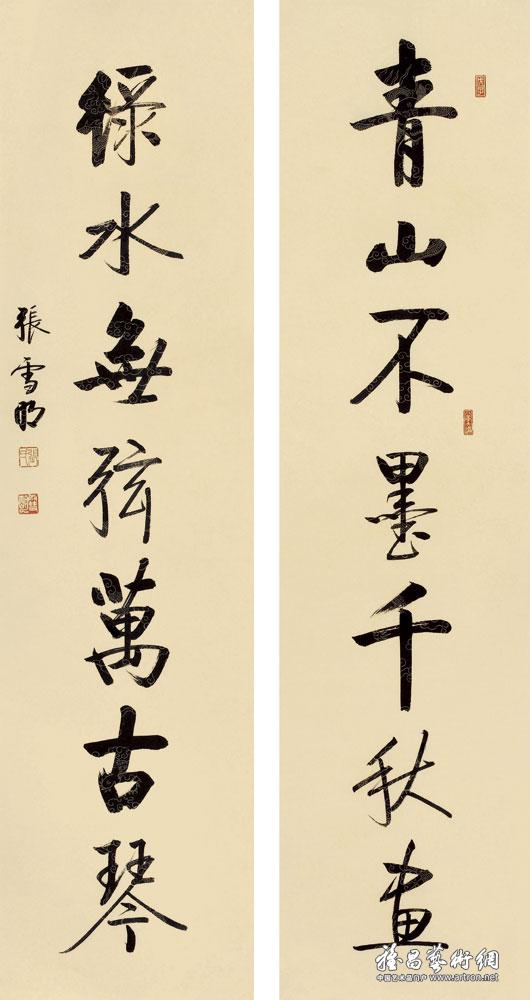 青山不墨千秋畫
綠水無弦萬古琴
張雪明
雅昌藝術網
中国艺术品门户 www.artron.net